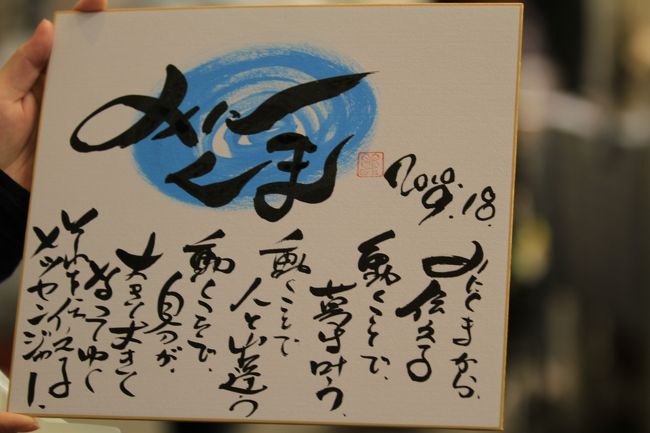 みにくま
2010.
9.18.
みにくまから
伝える
動くことで、
夢が叶う、
動くことで
人と出逢う
動くことで、
自分が、
大きく大きく
なってゆく
それを伝える
メッセンジャー!